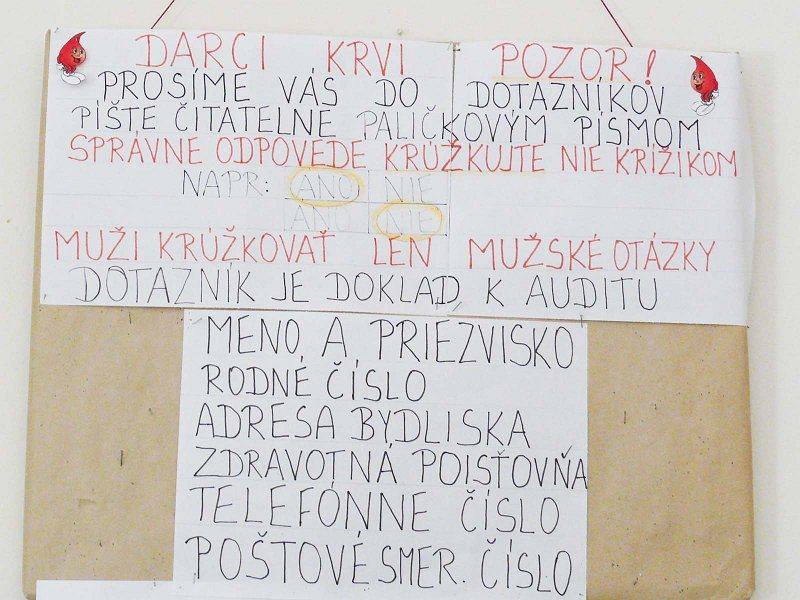 DARCI KRVI POZOR!
PROSÍME VÁS DO DOTAZNÍKOV
PÍŠTE ČITATEĽNE PALIČKOVÝM PÍSMOM
SPRÁVNE ODPOVEDE KRÚŽKUJTE NIE KRÍŽIKOM
NAPR: ÁNO NIE
ÁNO NIE
MUŽI KRÚŽKOVAŤ LEN MUŽSKÉ OTÁZKY
DOTAZNÍK JE DOKLAD K AUDITU
MENO A PRIEZVISKO
RODNÉ ČÍSLO
ADRESA BYDLISKA
ZDRAVOTNÁ POISŤOVŇA
TELEFÓNNE ČÍSLO
POŠTOVÉ SMER. ČÍSLO